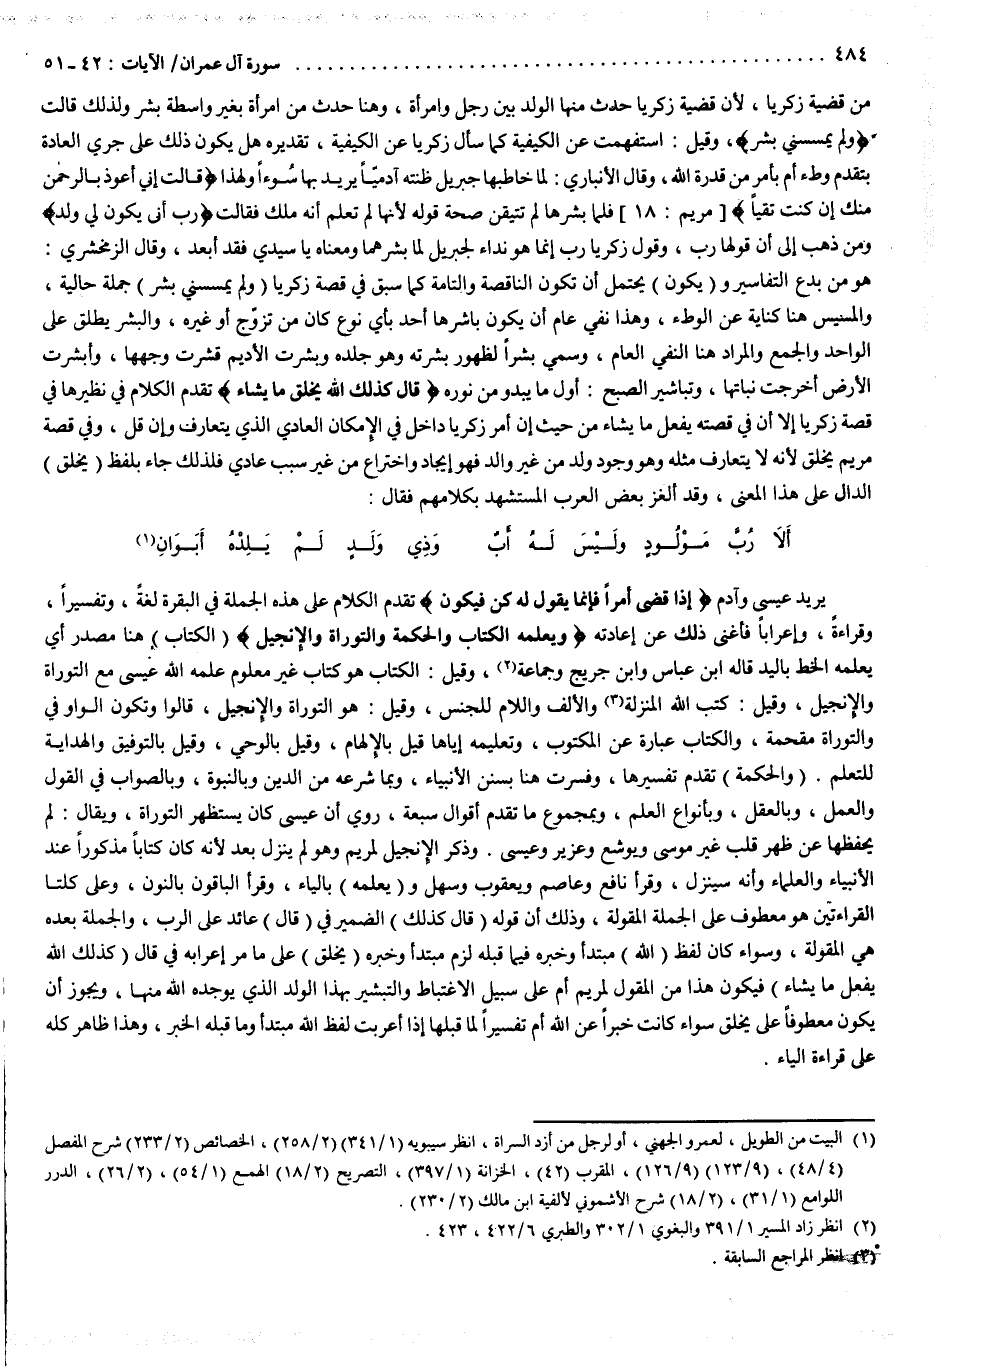 ٤٨٤ ............................................................ سورة آل عمران/ الآيات : ٤٢ ـ ٥١
من قضية زكريا ، لأن قضية زكريا حدث منها الولد بين رجل وامرأة ، وهنا حدث من امرأة بغير واسطة بشر ولذلك قالت
﴿ولم يمسسني بشر﴾، وقيل : استفهمت عن الكيفية كما سأل زكريا عن الكيفية ، تقديره هل يكون ذلك على جري العادة
بتقدم وطء أم بأمر من قدرة الله ، وقال الأنباري : لما خاطبها جبريل ظنته آدميّاً يريد بها سُوءاً ولهذا ﴿ قالت إني أعوذ بالرحمن
منك إن كنت تقياً ﴾ [ مريم : ١٨ ] فلما بشرها لم تتيقن صحة قوله لأنها لم تعلم أنه ملك فقالت ﴿رب أنى يكون لي ولد﴾
ومن ذهب إلى أن قولها رب ، وقول زكريا رب إنما هو نداء لجبريل لما بشرهما ومعناه يا سيدي فقد أبعد ، وقال الزمخشري :
هو من بدع التفاسير و ( يكون ) يحتمل أن تكون الناقصة والتامة كما سبق في قصة زكريا ( ولم يمسسني بشر ) جملة حالية ،
والمسيس هنا كناية عن الوطء ، وهذا نفي عام أن يكون باشرها أحد بأي نوع كان من تزوّج أو غيره ، والبشر يطلق على
الواحد والجمع والمراد هنا النفي العام ، وسمي بشراً لظهور بشرته وهو جلده وبشرت الأديم قشرت وجهها ، وأبشرت
الأرض أخرجت نباتها ، وتباشير الصبح : أول ما يبدو من نوره ﴿ قال كذلك الله يخلق ما يشاء ﴾ تقدم الكلام في نظيرها في
قصة زكريا إلا أن في قصته يفعل ما يشاء من حيث إن أمر زكريا داخل في الإمكان العادي الذي يتعارف وإن قل ، وفي قصة
مريم يخلق لأنه لا يتعارف مثله وهو وجود ولد من غير والد فهو إيجاد واختراع من غير سبب عادي فلذلك جاء بلفظ ( يخلق )
الدال على هذا المعنى ، وقد ألغز بعض العرب المستشهد بكلامهم فقال :
أَلَا رُبَّ مَوْلُودٍ ولَيْسَ لَهُ أَبٌ وَذِي وَلَدٍ لَمْ يَلِدْهُ أَبَوَانِ(١)
يريد عيسى وآدم ﴿ إذا قضى أمراً فإنما يقول له كن فيكون ﴾ تقدم الكلام على هذه الجملة في البقرة لغةً ، وتفسيراً ،
وقراءةً ، وإعراباً فأغنى ذلك عن إعادته ﴿ ويعلمه الكتاب والحكمة والتوراة والإنجيل ﴾ ( الكتاب ) هنا مصدر أي
يعلمه الخط باليد قاله ابن عباس وابن جريج وجماعة(٢) ، وقيل : الكتاب هو كتاب غير معلوم علمه الله عيسى مع التوراة
والإنجيل ، وقيل : كتب الله المنزلة(٣) والألف واللام للجنس ، وقيل : هو التوراة والإنجيل ، قالوا وتكون الواو في
والتوراة مقحمة ، والكتاب عبارة عن المكتوب ، وتعليمه إياها قيل بالإلهام ، وقيل بالوحي ، وقيل بالتوفيق والهداية
للتعلم . ( والحكمة ) تقدم تفسيرها ، وفسرت هنا بسنن الأنبياء ، وبما شرعه من الدين وبالنبوة ، وبالصواب في القول
والعمل ، وبالعقل ، وبأنواع العلم ، وبمجموع ما تقدم أقوال سبعة ، روي أن عيسى كان يستظهر التوراة ، ويقال : لم
يحفظها عن ظهر قلب غير موسى ويوشع وعزير وعيسى . وذكر الإنجيل لمريم وهو لم ينزل بعد لأنه كان كتاباً مذكوراً عند
الأنبياء والعلماء وأنه سينزل ، وقرأ نافع وعاصم ويعقوب وسهل و ( يعلمه ) بالياء ، وقرأ الباقون بالنون ، وعلى كلتا
القراءتين هو معطوف على الجملة المقولة ، وذلك أن قوله ( قال كذلك ) الضمير في ( قال ) عائد على الرب ، والجملة بعده
هي المقولة ، وسواء كان لفظ ( الله ) مبتدأ وخبره فيما قبله لزم مبتدأ وخبره ( يخلق ) على ما مر إعرابه في قال ( كذلك الله
يفعل ما يشاء ) فيكون هذا من المقول لمريم أم على سبيل الاغتباط والتبشير بهذا الولد الذي يوجده الله منها ، ويجوز أن
يكون معطوفاً على يخلق سواء كانت خبراً عن الله أم تفسيراً لما قبلها إذا أعربت لفظ الله مبتدأ وما قبله الخبر ، وهذا ظاهر كله
على قراءة الياء .
(١) البيت من الطويل ، لعمرو الجهني ، أو لرجل من أزد السراة ، انظر سيبويه (٣٤١/١) (٢٥٨/٢) ، الخصائص (٢٣٣/٢) شرح المفصل
(٤٨/٤) ، (١٢٣/٩) (١٢٦/٩) ، المقرب (٤٢) ، الخزانة (٣٩٧/١) ، التصريح (١٨/٢) الهمع (٥٤/١) ، (٢٦/٢) ، الدرر
اللوامع (٣١/١) ، (١٨/٢) شرح الأشموني لألفية ابن مالك (٢٣٠/٢) .
(٢) انظر زاد المسير ٣٩١/١ والبغوي ٣٠٢/١ والطبري ٤٢٢/٦ ، ٤٢٣ .
(٣) انظر المراجع السابقة .